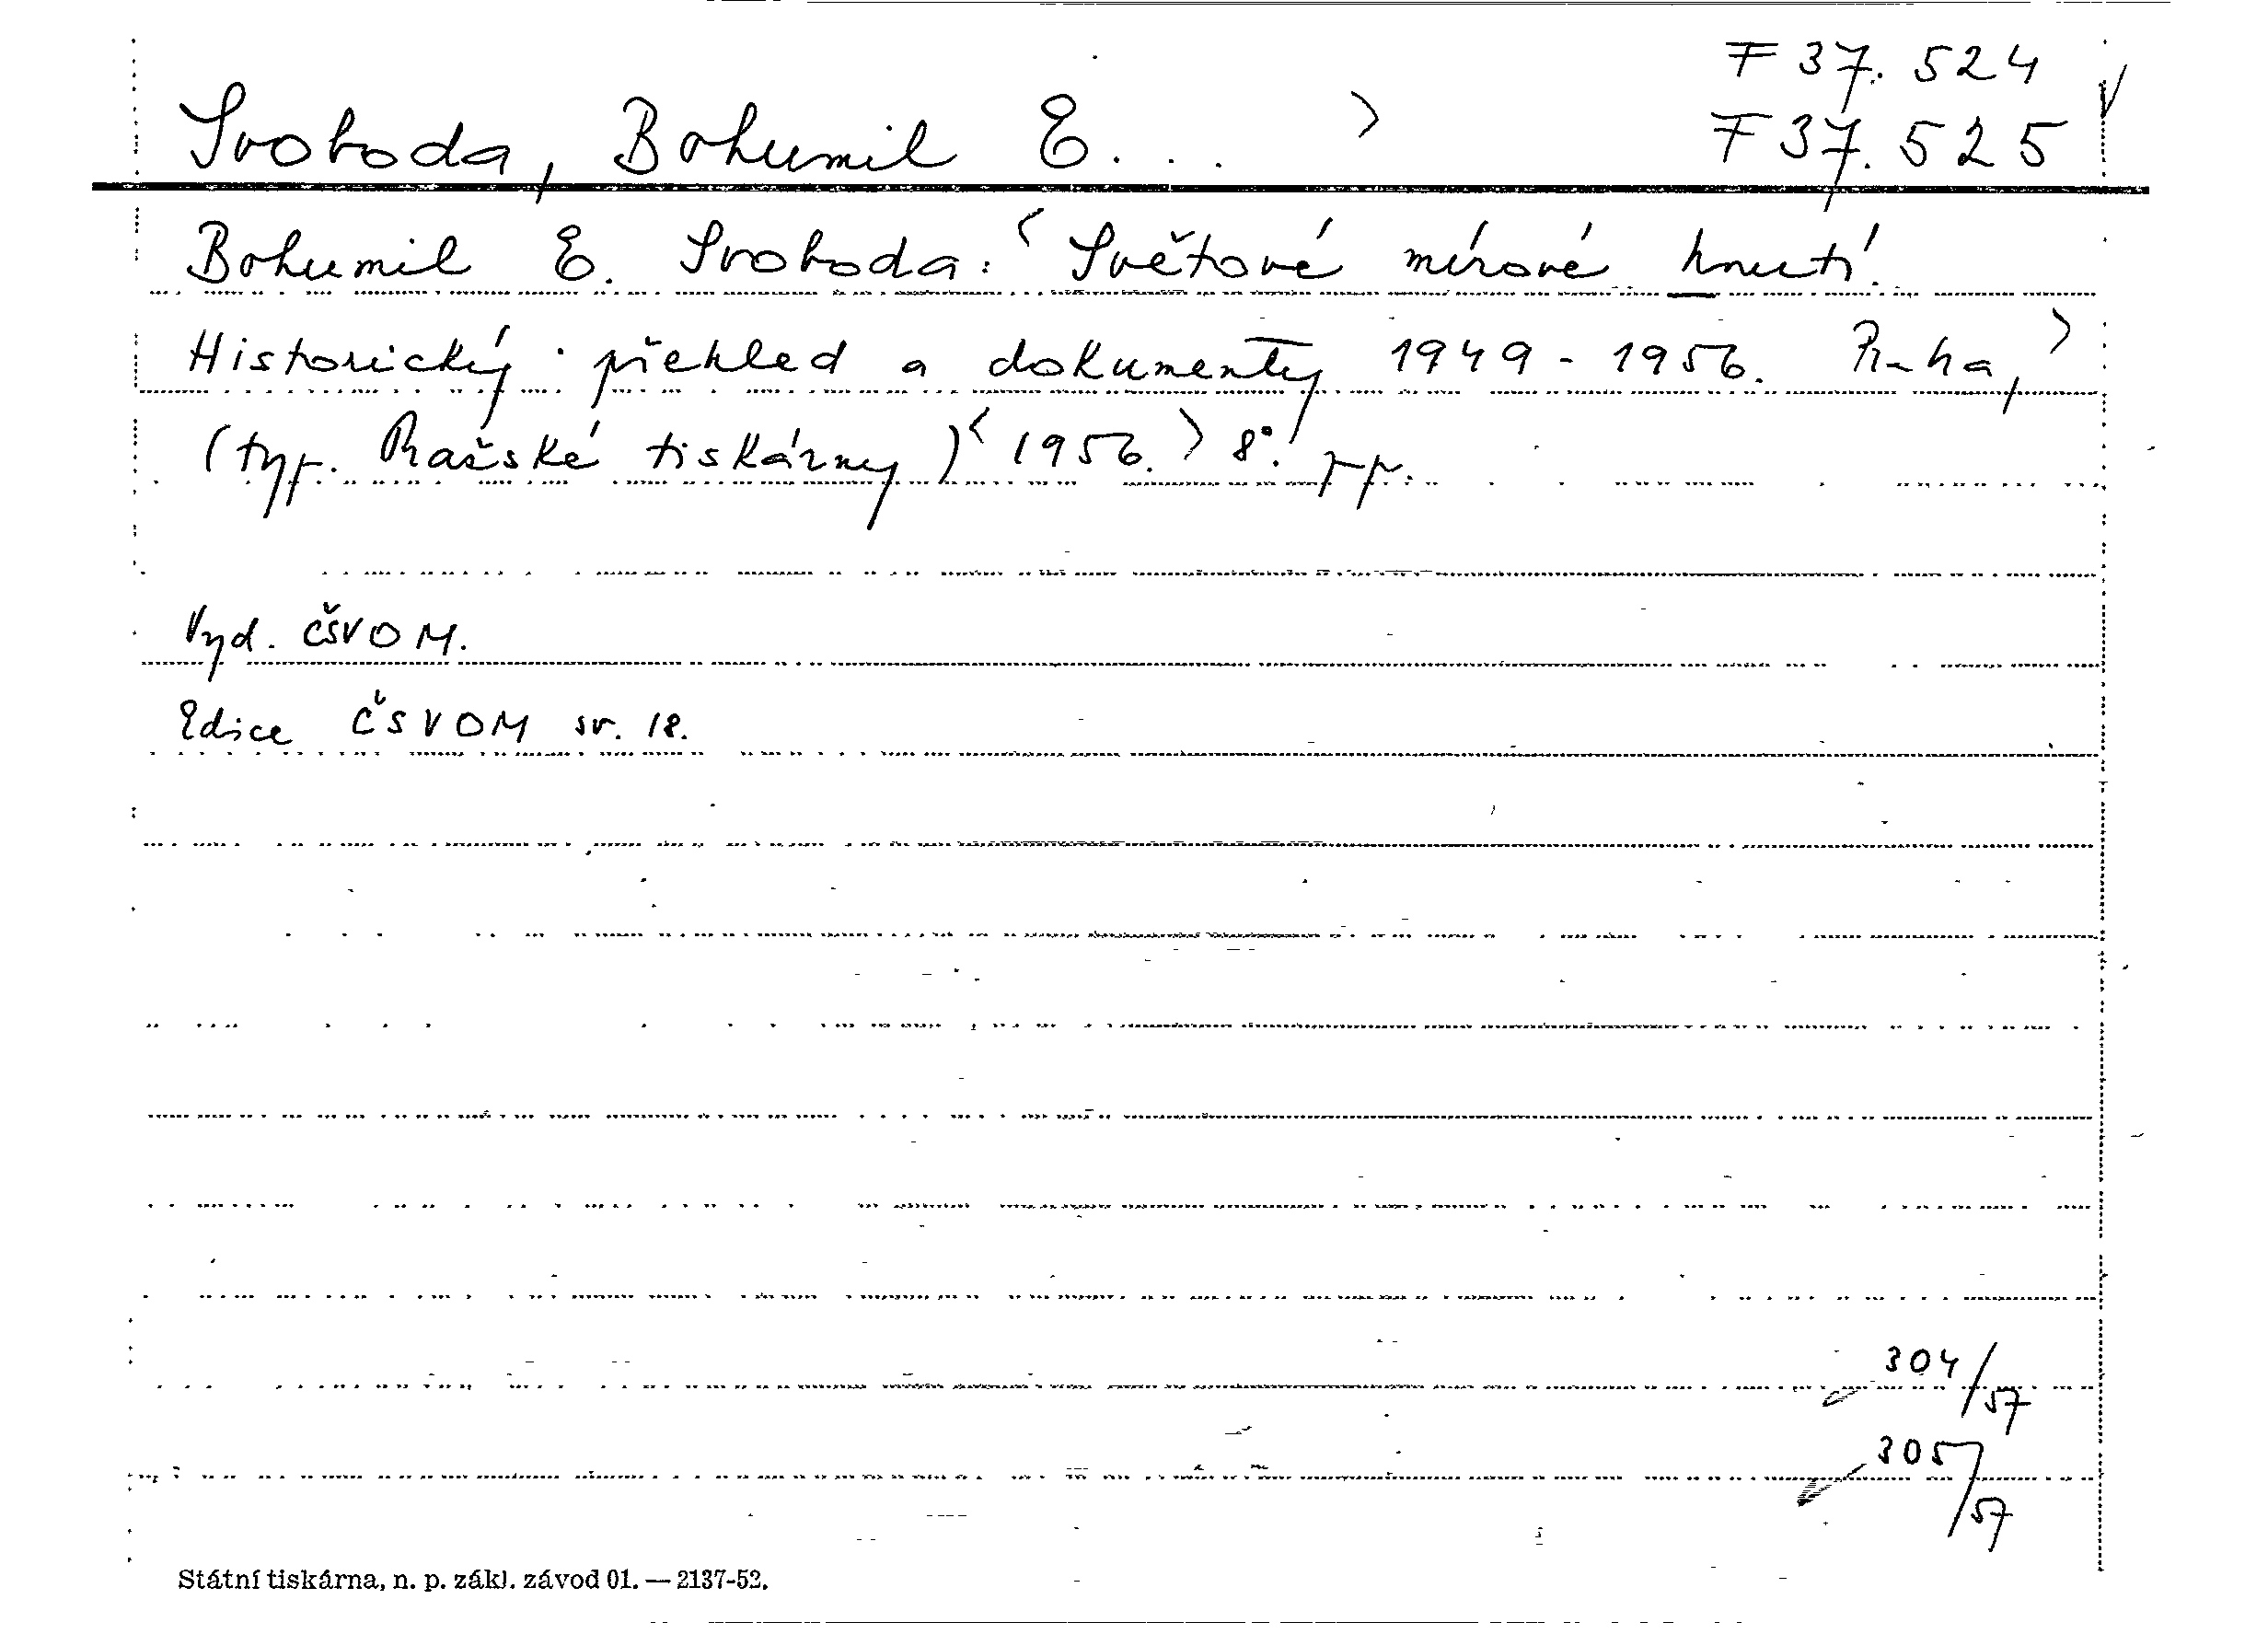 F 37.524
Svoboda, Bohumil E. . . >
F 37.525
Bohumil E. Svoboda: < Světové mírové hnutí.
Historický přehled a dokumenty 1949-1956. Praha, >
(typ. Pražské tiskárny) < 1956. > 8°. pp.
Vyd. ČSVOM.
Edice ČSVOM sv. 18.
304/57
305/57
Státní tiskárna, n. p. zákl. závod 01. — 2137-52.